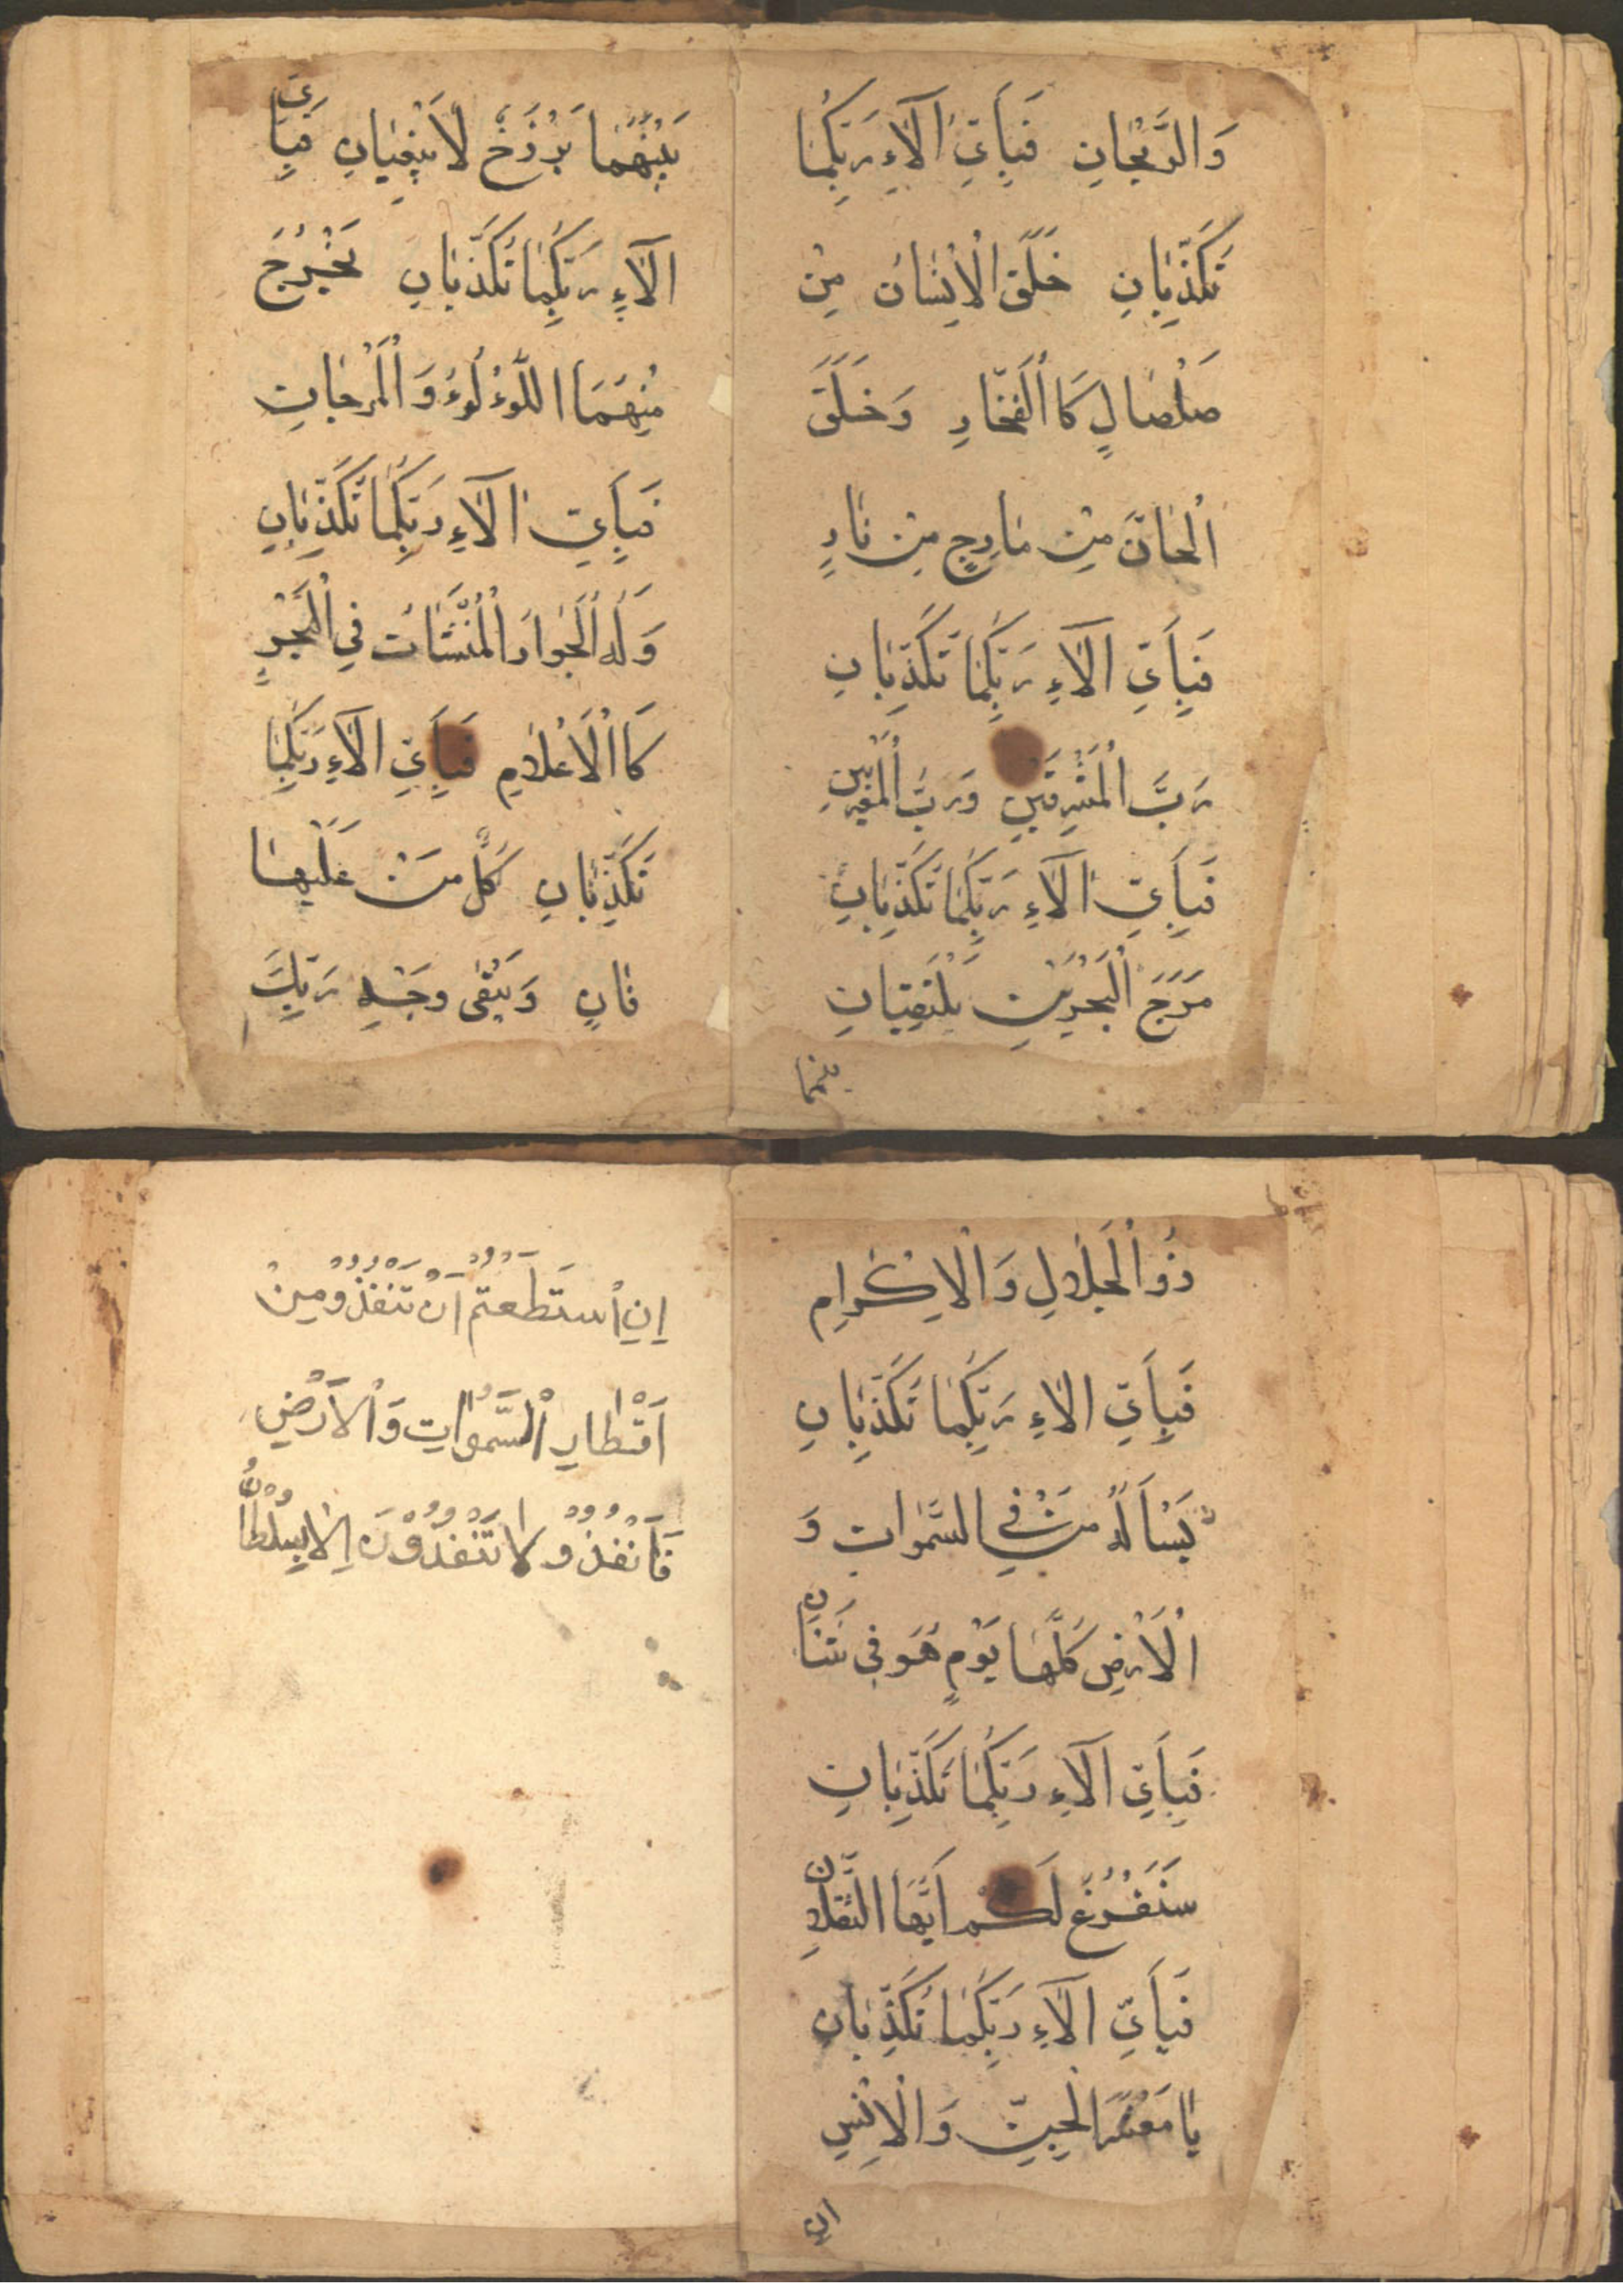 وَالرَّيْحَانِ فَبِاَيِّ اٰلَآءِ رَبِّكُمَا
تُكَذِّبَانِ خَلَقَ الْاِنْسَانَ مِنْ
صَلْصَالٍ كَاالْفَخَّارِ وَخَلَقَ
الْجَانَّ مِنْ مَارِجٍ مِنْ نَارٍ
فَبِاَيِّ اٰلَآءِ رَبِّكُمَا تُكَذِّبَانِ
رَبُّ الْمَشْرِقَيْنِ وَرَبُّ الْمَغْرِبَيْنِ
فَبِاَيِّ اٰلَآءِ رَبِّكُمَا تُكَذِّبَانِ
مَرَجَ الْبَحْرَيْنِ يَلْتَقِيَانِ
بينهما
بَيْنَهُمَا بَرْزَخٌ لَا يَبْغِيَانِ فَبِاَيِّ
اٰلَآءِ رَبِّكُمَا تُكَذِّبَانِ يَخْرُجُ
مِنْهُمَا اللُّؤْلُوءُ وَالْمَرْجَانِ
فَبِاَيِّ اٰلَآءِ رَبِّكُمَا تُكَذِّبَانِ
وَلَهُ الْجَوَارُ الْمُنْشَئَاتُ فِي الْبَحْرِ
كَاالْاَعْلَامِ فَبِاَيِّ اٰلَآءِ رَبِّكُمَا
تُكَذِّبَانِ كُلُّ مَنْ عَلَيْهَا
فَانٍ وَيَبْقَى وَجْهِ رَبِّكَ
ذُوالْجَلَالِ وَالْاِكْرَامِ
فَبِاَيِّ اٰلَاءِ رَبِّكُمَا تُكَذِّبَانِ
يَسْاَلُهُ مَنْ فِي السَّمٰوَاتِ وَ
الْاَرْضِ كُلَّهَا يَوْمٍ هُوَ فِي شَاْنٍ
فَبِاَيِّ اٰلَآءِ رَبِّكُمَا تُكَذِّبَانِ
سَنَفْرُغُ لَكُمْ اَيُّهَا الثَّقَلَانِ
فَبِاَيِّ اٰلَآءِ رَبِّكُمَا تُكَذِّبَانِ
يَا مَعْشَرَ الْجِنِّ وَالْاِنْسِ
ان
اِنِ اسْتَطَعْتُمْ اَنْ تَنْفُذُو مِنْ
اَقْطَارِ السَّمٰوَاتِ وَالْاَرْضِ
فَانْفُذُو لَا تَنْفُذُوْنَ اِلَّا بِسُلْطَانٍ